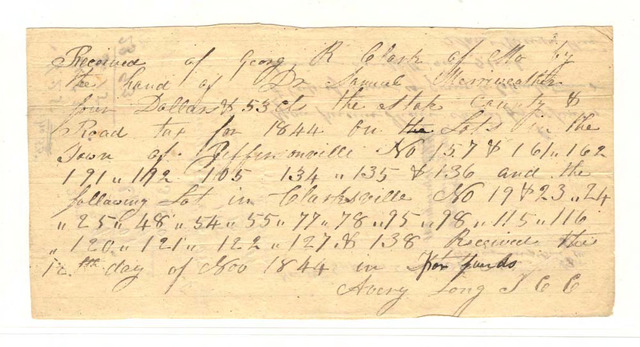 Received of Georg R Clark of Mo by
the hand of Dr Samuel Merriweather
four Dollars & 53 cts the state County &
Road tax for 1844 on the Lots in the
Town of Jeffersonville No 157 & 161 " 162
191 " 192 105 134 " 135 & 136 and the
following Lot in Clarksville No 19 & 23 " 24
" 25 " 48 " 54 " 55 " 77 " 78 " 95 " 98 " 115 " 116
" 120 " 121 " 122 " 127 & 138 Received this
12th day of Nov 1844 in funds
Avery Long T C C